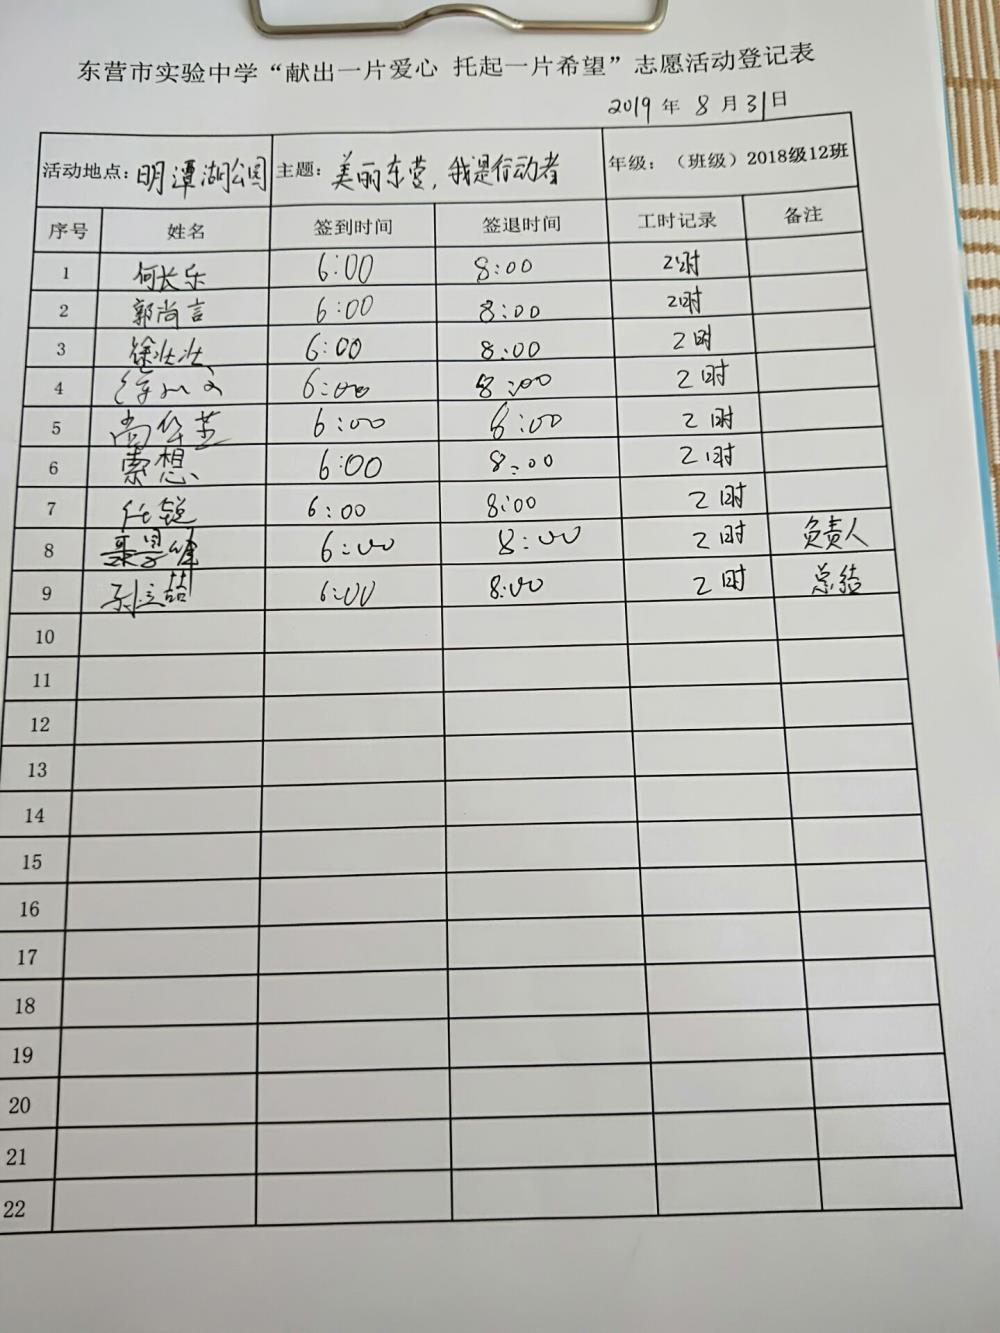 东营市实验中学“献出一片爱心 托起一片希望”志愿活动登记表
2019 年 8 月 31 日
活动地点：明潭湖公园 主题：美丽东营，我是行动者 年级：（班级）2018级12班
序号 姓名 签到时间 签退时间 工时记录 备注
1 何长乐 6:00 8:00 2时
2 郭尚言 6:00 8:00 2时
3 徐壮壮 6:00 8:00 2时
4 6:00 8:00 2时
5 尚华芝 6:00 8:00 2时
6 索想 6:00 8:00 2时
7 任锐 6:00 8:00 2时
8 6:00 8:00 2时 负责人
9 孙立喆 6:00 8:00 2时 总结
10
11
12
13
14
15
16
17
18
19
20
21
22